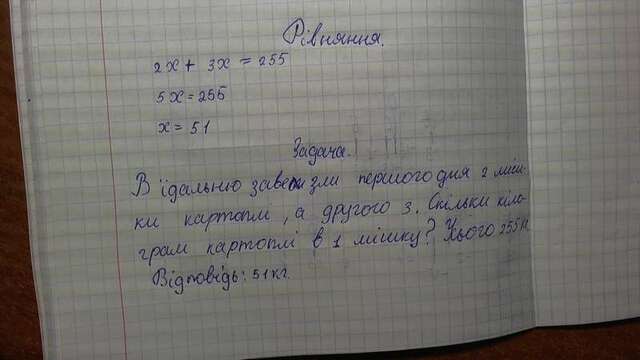 Рівняння.
2x + 3x = 255
5x = 255
x = 51
Задача.
В їдальню завезли першого дня 2 міш-
ки картоплі, а другого 3. Скільки кіло-
грам картоплі в 1 мішку? Усього 255 кг
Відповідь: 51 кг.